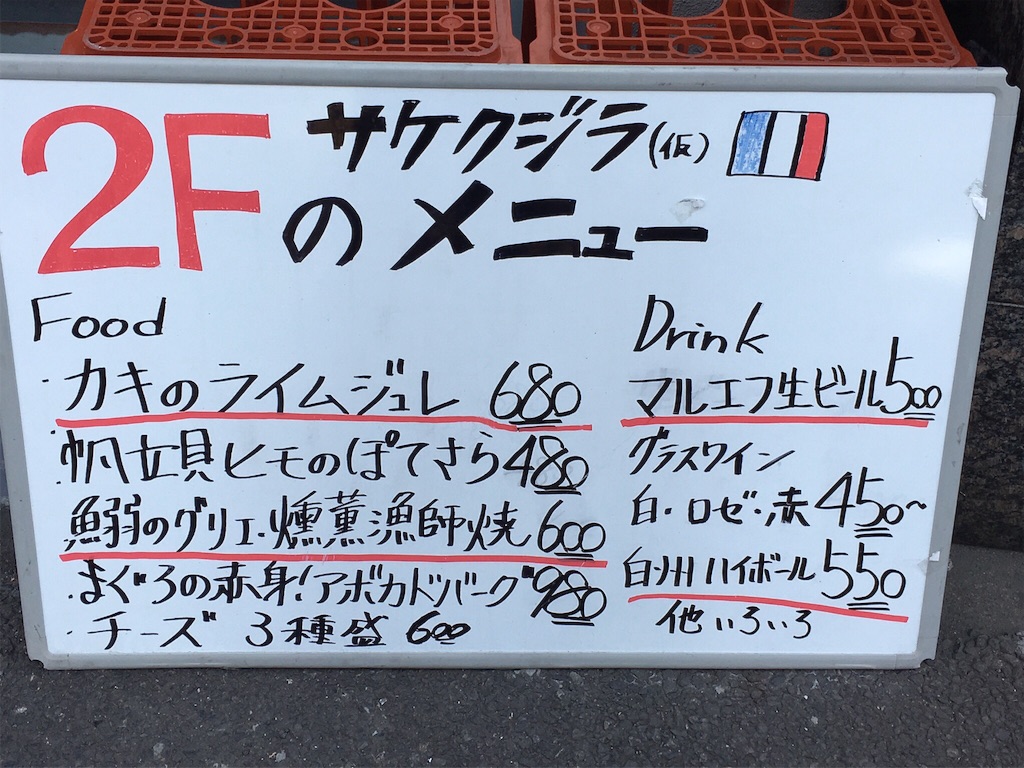 2F サケクジラ(仮)
のメニュー
Food
・カキのライムジュレ 680
・帆立貝ヒモのぽてさら 480
・鰯のグリエ・燻薫漁師焼 600
・まぐろの赤身!アボカドバーグ 980
・チーズ 3種盛 600
Drink
マルエフ生ビール 500
グラスワイン
白・ロゼ・赤 450~
白州ハイボール 550
他いろいろ